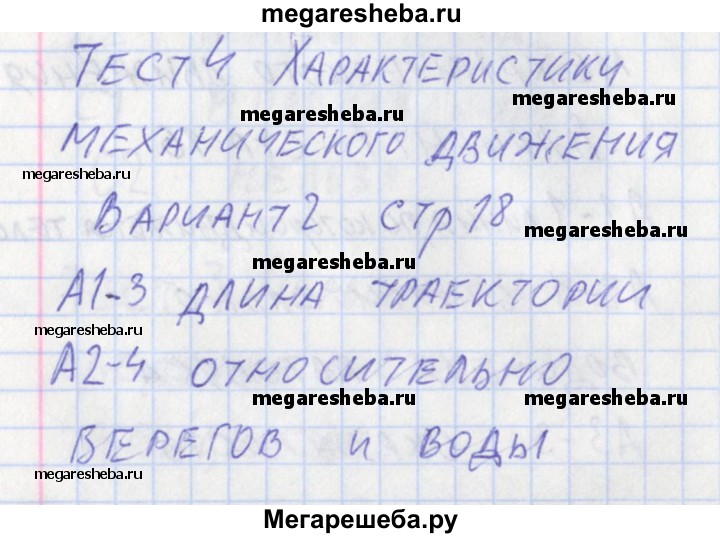 megaresheba.ru
ТЕСТ 4 ХАРАКТЕРИСТИКИ
megaresheba.ru
megaresheba.ru
МЕХАНИЧЕСКОГО ДВИЖЕНИЯ
megaresheba.ru
ВАРИАНТ 2 СТР 18
megaresheba.ru
megaresheba.ru
А1-3 ДЛИНА ТРАЕКТОРИИ
megaresheba.ru
А2-4 ОТНОСИТЕЛЬНО
megaresheba.ru
megaresheba.ru
БЕРЕГОВ И ВОДЫ
megaresheba.ru
Мегарешеба.ру